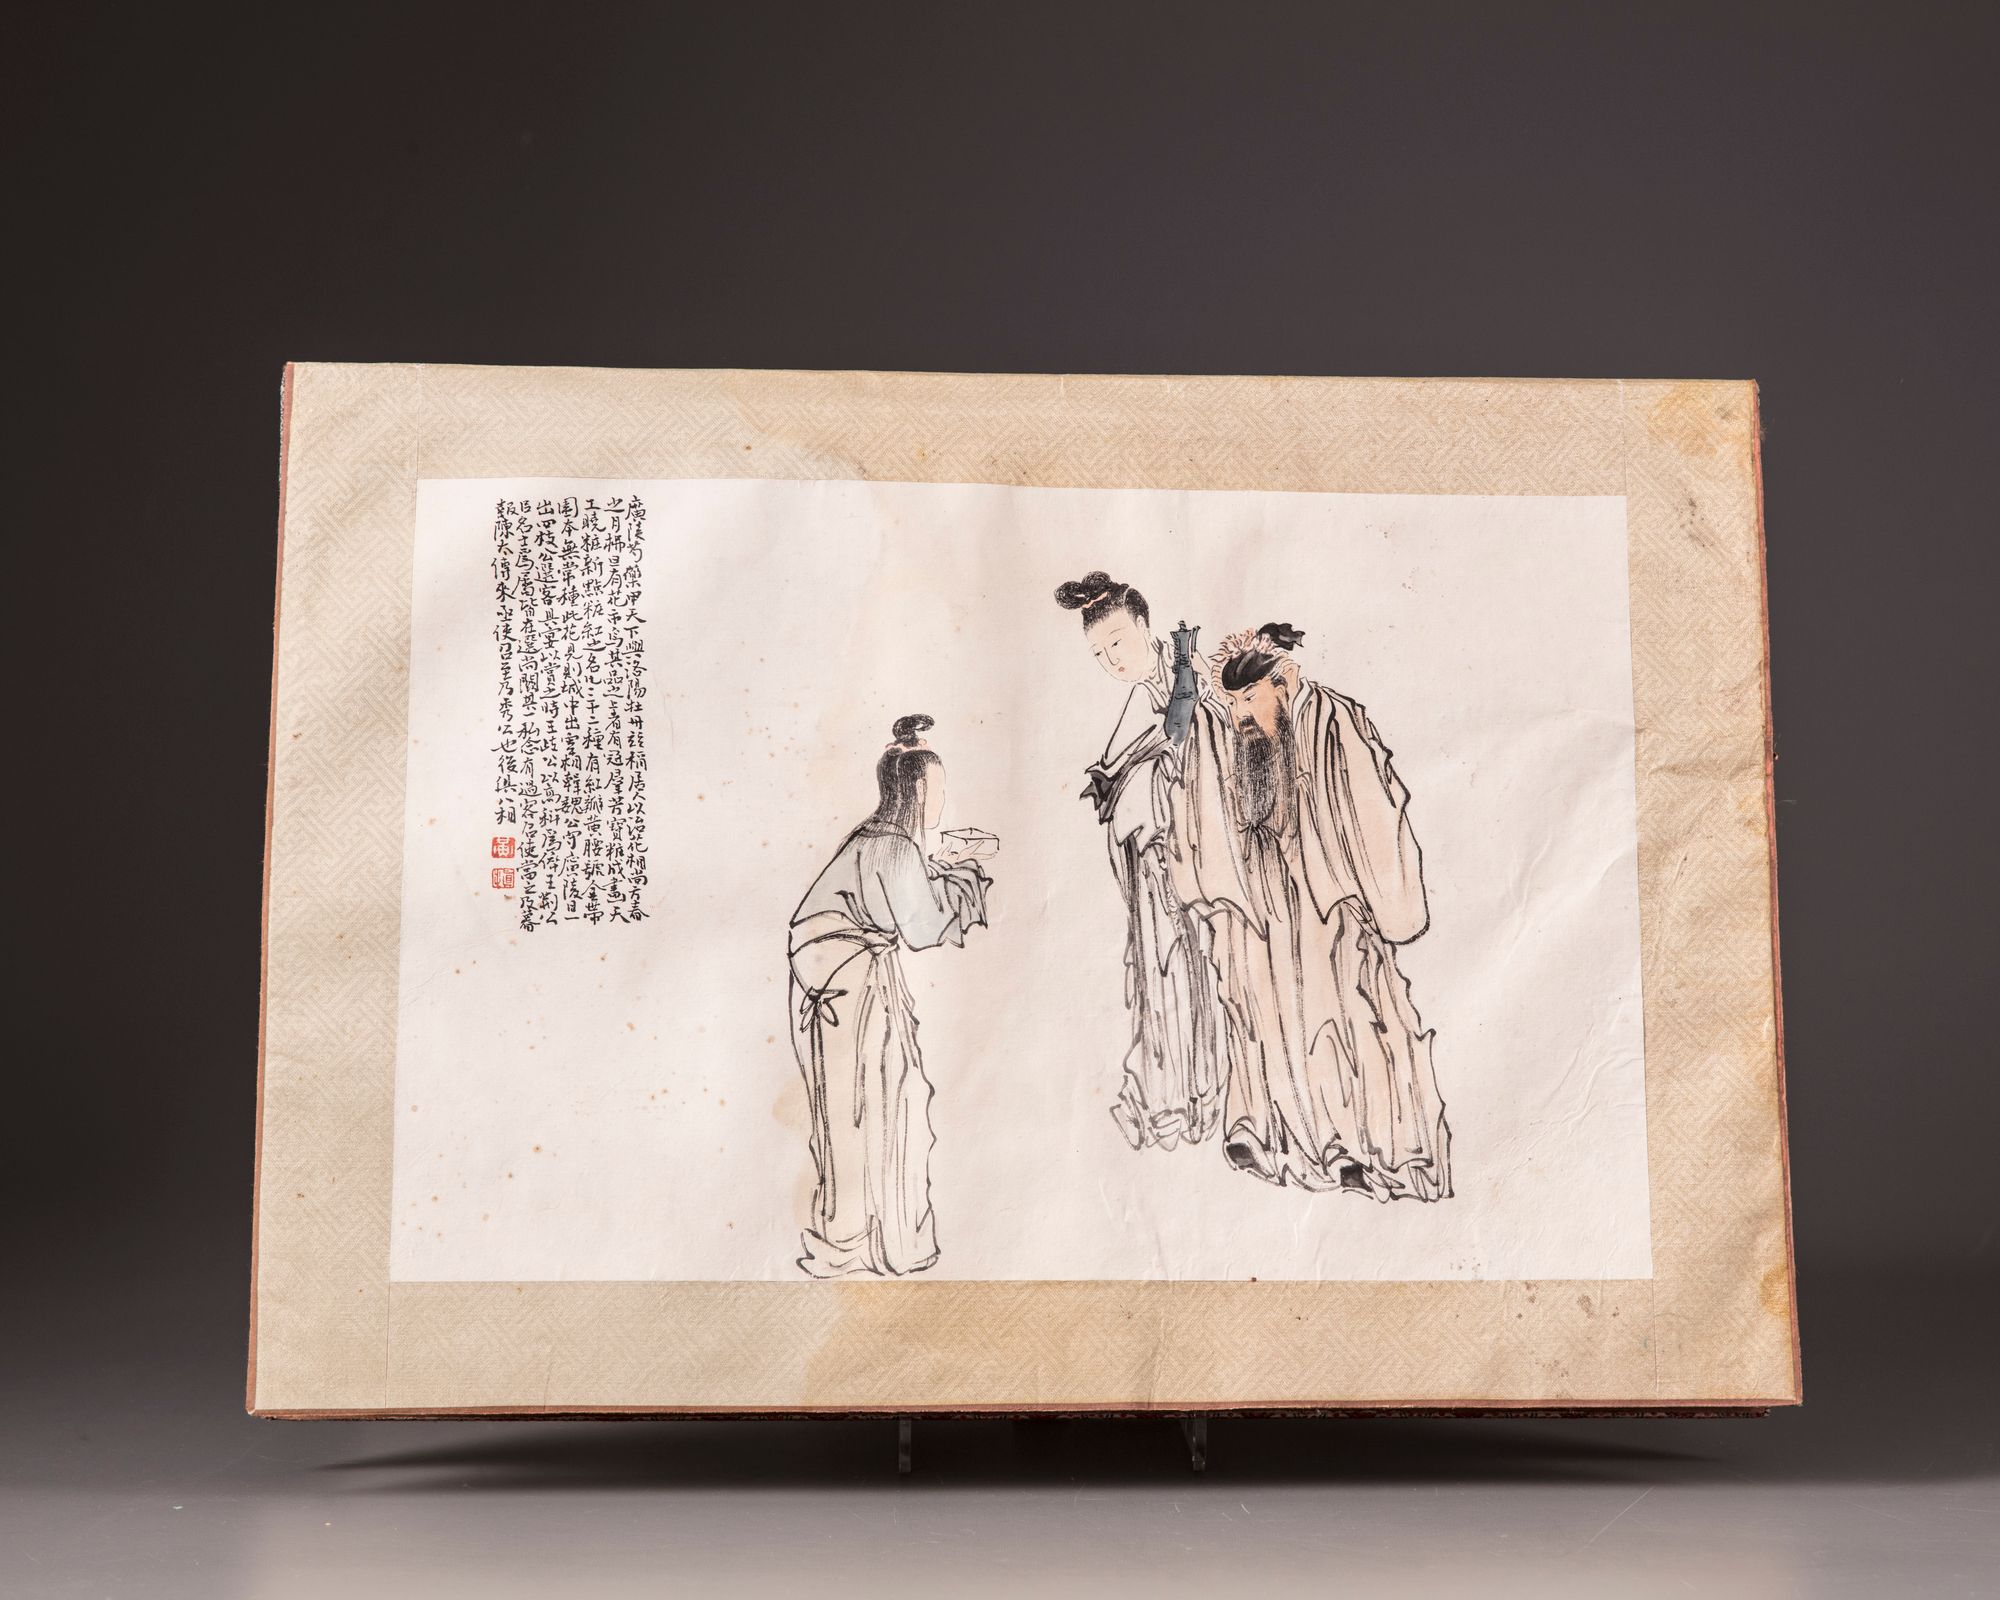 廣陵芍藥甲天下與洛陽牡丹竝稱居人以治花相尚方春
之月柳旦有花市焉其品之上者有冠羣芳寶粧成畫天
工曉粧新點粧紅之名凡三十二種有紅瓣黃腰號金帶
圍本無常種此花見則城中出宰相韓魏公守廣陵日一
出四枝公選客具宴以賞之時王岐公以高科為倅王荊公
名士為屬皆在選尚闕其一私念有過客召使當之及暮
報陳太傅來亟使召至乃秀公也後俱入相